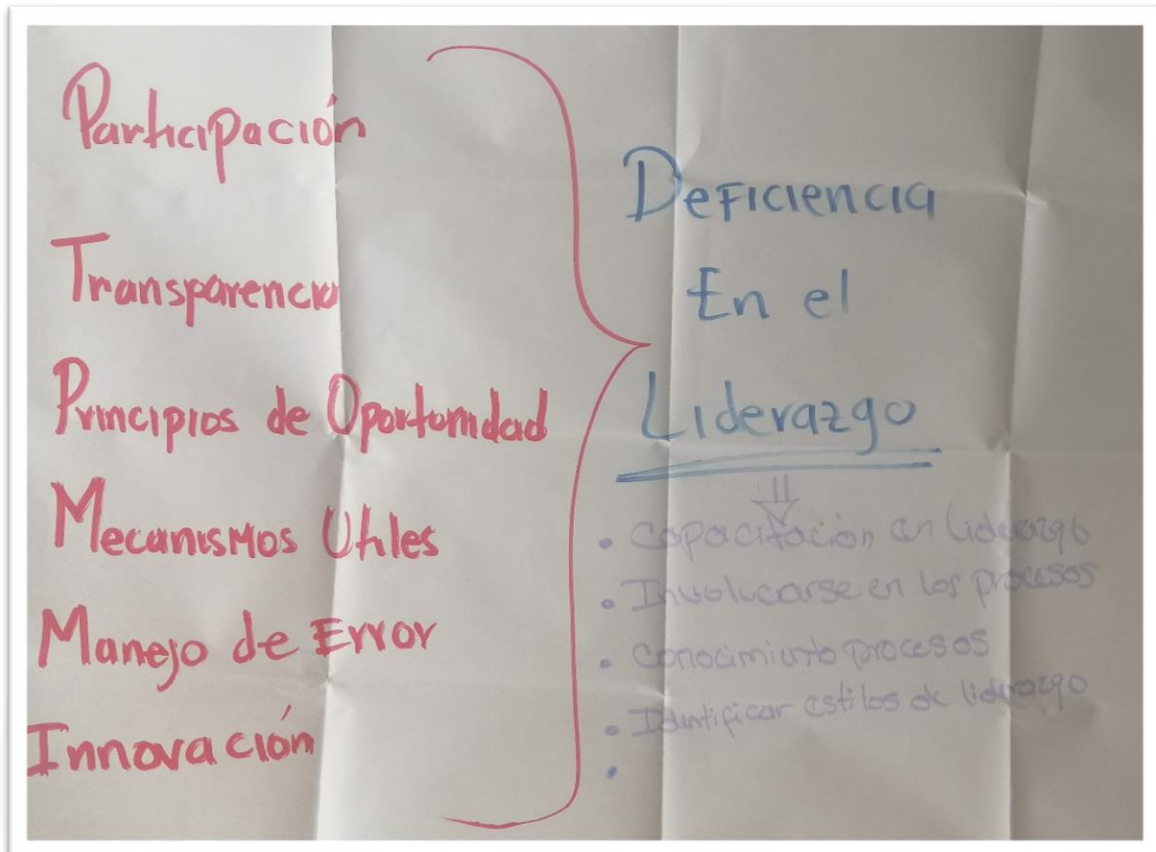 Participación
Transparencia
Principios de Oportunidad
Mecanismos Utiles
Manejo de Error
Innovación
Deficiencia
En el
Liderazgo
• Capacitación en Liderazgo
• Involucarse en los procesos
• Conocimiento procesos
• Identificar estilos de liderazgo
•